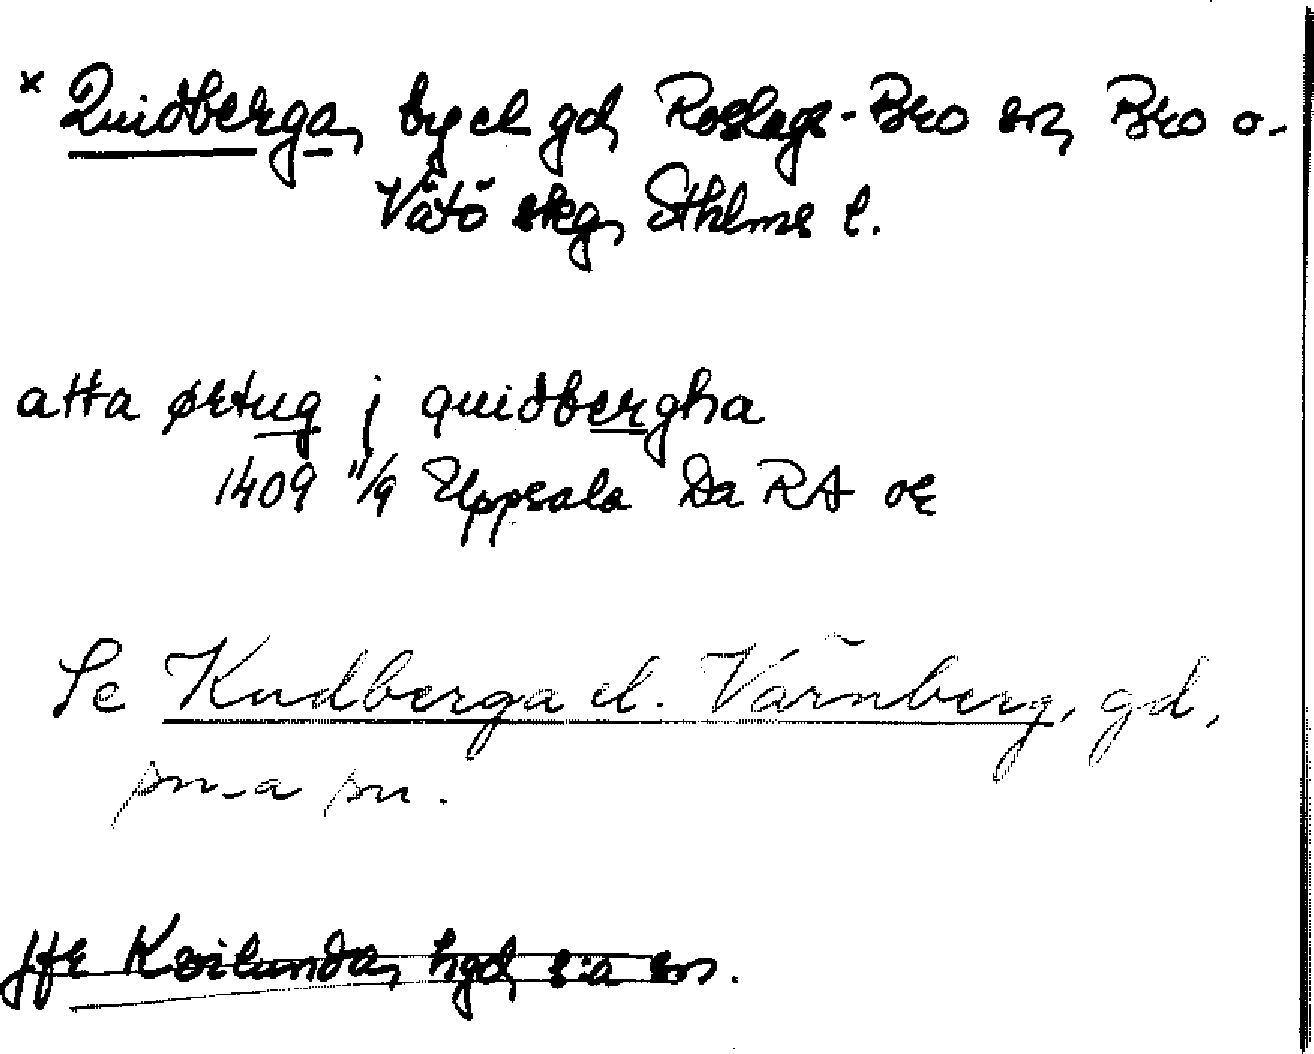 × Quidberga, by el gd, Roslags-Bro sn, Bro o.
Vätö skg, Sthlms l.
atta ørtug j quidbergha
1409 11/9 Uppsala Da RA or
Se Kudberga el. Värnberg, gd,
sn-a sn.
jfr Kvilunda, hgd, s:a sn.